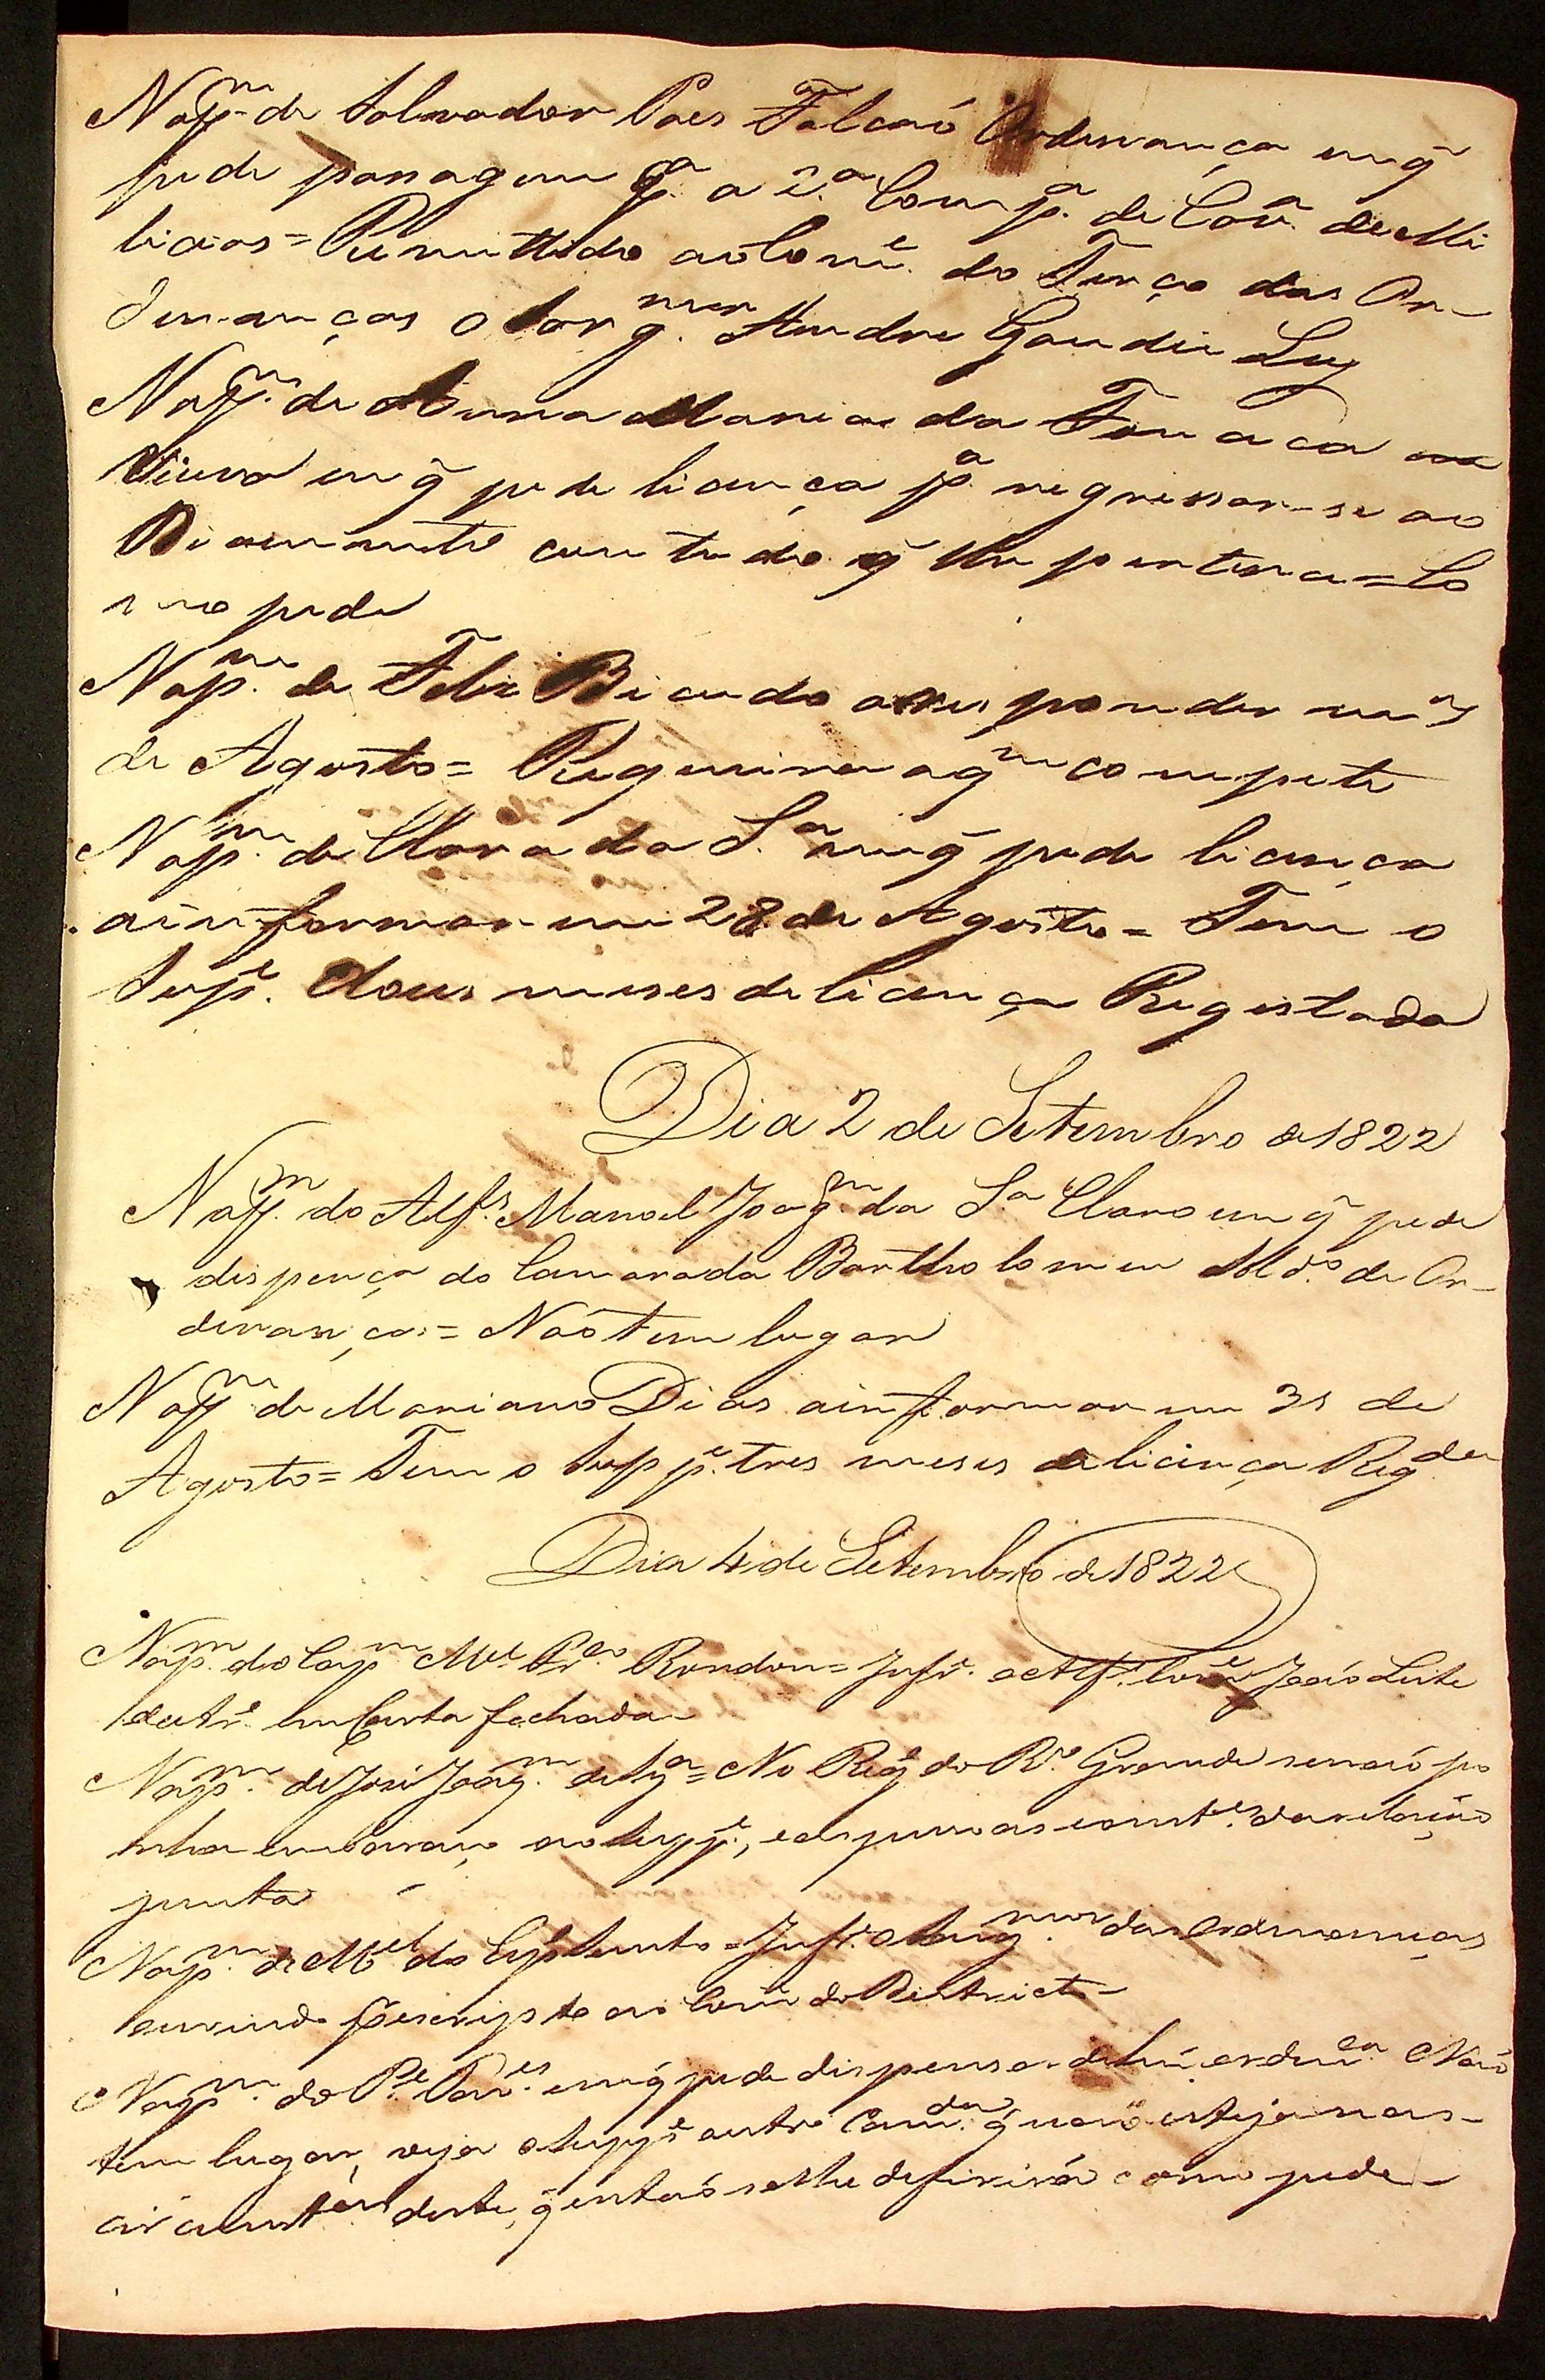 No Req.m de Salvador Paes Falcaõ Ordenança em q̃
pede passagem p.a a 2.a Comp.a de Cav.a de Mi
licias = Permittido ao Com.e do Terço das Or-
denanças o Sarg.mor Andre Gaudie Ley
No Req.m de Anna Maria da Fon
Viuva em q̃ pede licença p.a regressar-se ao
Diamantº com tudo q̃ lhe pertence = Co
mo pede
No Rep.m de Felix Bicudo a responder em
de Agosto = Requeira a q.m compete
No Rep.m de Clara da S.a em q̃ pede licença
a informar em 28 de Agosto = Tem o
Sup.e dous meses de licença Registada
Dia 2 de Setembro de 1822
No Req.m do Alf.s Manoel Joaq.m da S.a Claro em q̃ pede
dispença do Camarada Bartholomeu de Or-
denanças = Naõ tem lugar
No Req.m de Mariano Dias a informar em 31 de
Agosto = Tem o Supp.e tres meses de licença Reg.da
Dia 4 de Setembro de 1822
No Rep.m do Cap.m M.el Rondon = Inf.e o Alf.s Com.e Joaõ Leite
em Carta fechada
No Rep.m de José Joaq.m = No Reg.o do R.o Grande senaõ po
nha embaraço ao Supp.e, e as da relaçaõ
junta
No Rep.m de M.el do = Inf.e o Sarg.mor das Ordenanças
ouvindo p.r escripto ao Com.e do Districto
No Rep.m do P.e em q̃ pede dispensa de hũ orden.ca Naõ
tem lugar, veja o Supp.e outro Cam.da q̃ naõ esteja nas
circunst.as deste, q̃ entaõ se lhe defirirá como pede